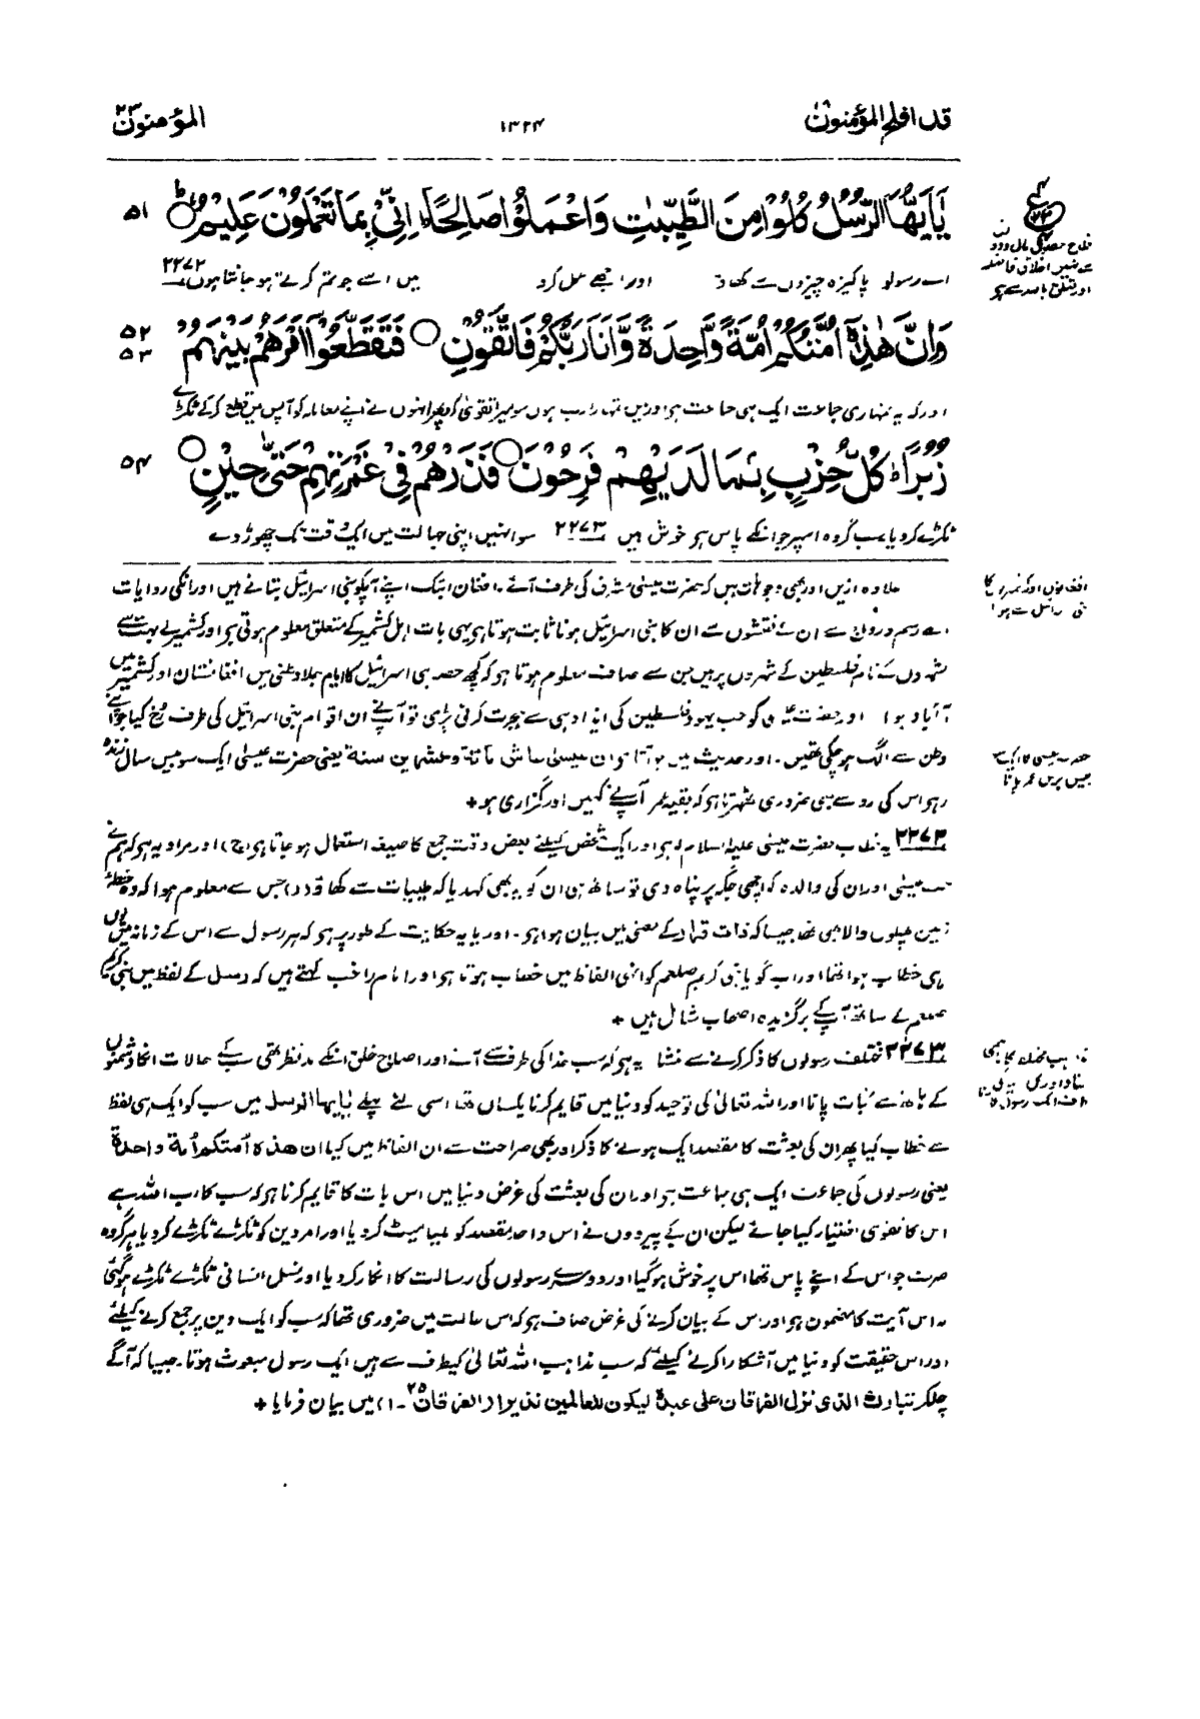 قد افلح المؤمنون ۱۸
۱۳۲۴
المؤمنون ۲۳
يٰۤاَيُّهَا الرُّسُلُ كُلُوْا مِنَ الطَّيِّبٰتِ وَاعْمَلُوْا صَالِحًا ؕ اِنِّيْ بِمَا تَعْمَلُوْنَ عَلِيْمٌ ؕ ۵۱
فلاح حصول مال و دولت
سے نہیں اخلاق فاضلہ
اور تعلق باللہ سے ہے
اے رسولو پاکیزہ چیزوں سے کھاؤ اور اچھے عمل کرو میں اسے جو تم کرتے ہو جانتا ہوں ۲۲۷۲
وَاِنَّ هٰذِهٖۤ اُمَّتُكُمْ اُمَّةً وَّاحِدَةً وَّاَنَا رَبُّكُمْ فَاتَّقُوْنِ ○ فَتَقَطَّعُوْۤا اَمْرَهُمْ بَيْنَهُمْ ۵۲ ۵۳
اور کہ یہ تمہاری جماعت ایک ہی جماعت ہے اور میں تمہارا رب ہوں سو میرا تقویٰ کرو پھر انہوں نے اپنے معاملہ کو آپس میں قطع کر کے ٹکڑے
زُبُرًا ؕ كُلُّ حِزْبٍۭ بِمَا لَدَيْهِمْ فَرِحُوْنَ ○ فَذَرْهُمْ فِيْ غَمْرَتِهِمْ حَتّٰى حِيْنٍ ○ ۵۴
ٹکڑے کر دیا سب گروہ اسپر جو انکے پاس ہے خوش ہیں ۲۲۷۳ سو انہیں اپنی جہالت میں ایک وقت تک چھوڑ دے
علاوہ ازیں اور بھی وجوہات ہیں کہ حضرت عیسیٰ مشرق کی طرف آئے۔ افغان ابتک اپنے آپکو بنی اسرائیل بتاتے ہیں اور انکی روایات
افغانوں اور کشمیریوں کا
بنی اسرائیل سے ہونا
اے رسم و رواج سے ان کے نقشوں سے ان کا بنی اسرائیل ہونا ثابت ہوتا ہے یہی بات اہل کشمیر کے متعلق معلوم ہوتی ہے اور کشمیر کے بہت سے
شہروں کے نام فلسطین کے شہروں پر ہیں جن سے صاف معلوم ہوتا ہو کہ کچھ حصہ بنی اسرائیل کا ایام جلاوطنی میں افغانستان اور کشمیر میں
آباد ہوا اور حضرت عیسیٰ کو جب یہود فلسطین کی ایذا دہی سے ہجرت کرنی پڑی تو آپنے ان اقوام بنی اسرائیل کی طرف رخ کیا جو اپنے
وطن سے الگ ہو چکی تھیں۔ اور حدیث میں ہو آتا ان عیسیٰ عاش مائة وعشرین سنة یعنی حضرت عیسیٰ ایک سو بیس سال زندہ
حضرت عیسیٰ کا ایک سو
بیس برس عمر پانا
رہو اس کی رو سے بھی ضروری ٹھہرتا ہو کہ بقیہ عمر آپنے کہیں اور گزاری ہو+
۲۲۷۲ یہ خطاب حضرت عیسیٰ علیہ السلام کو ہو اور ایک شخص کیلئے بعض وقت جمع کا صیغہ استعمال ہو جاتا ہو (ج) اور مراد یہ ہو کہ ہم نے
جب عیسیٰ اور ان کی والدہ کو اچھی جگہ پر پناہ دی تو ساتھ ہی ان کو یہ بھی کہدیا کہ طیبات سے کھاؤ (د) جس سے معلوم ہوا کہ وہ خطہ
زمین پھلوں والا بھی تھا جیسا کہ ذات قرار کے معنی میں بیان ہوا ہو۔ اور یا یہ حکایت کے طور پر ہو کہ ہر رسول سے اس کے زمانہ میں یوں
ہی خطاب ہوا تھا اور اب گویا نبی کریم صلعم کو انہی الفاظ میں خطاب ہوتا ہو اور امام راغب کہتے ہیں کہ رسل کے لفظ میں نبی کریم
صلعم کے ساتھ آپ کے برگزیدہ اصحاب شامل ہیں+
۲۲۷۳ مختلف رسولوں کا ذکر کرنے سے منشا یہ ہو کہ سب خدا کی طرف سے آئے اور اصلاح خلق انکے مدنظر تھی سب کے حالات انکا دشمنوں
کے ہاتھ سے نجات پانا اور اللہ تعالیٰ کی توحید کو دنیا میں قائم کرنا یکساں تھا اسی لئے پہلے یایها الرسل میں سب کو ایک ہی لفظ
سے خطاب کیا پھر ان کی بعثت کا مقصد ایک ہونے کا ذکر اور بھی صراحت سے ان الفاظ میں کیا ان هذه امتکم امة واحدة
یعنی رسولوں کی جماعت ایک ہی جماعت ہے اور ان کی بعثت کی غرض دنیا میں اس بات کا قایم کرنا ہو کہ سب کا رب اللہ ہے
اس کا تقویٰ اختیار کیا جائے لیکن ان کے پیروؤں نے اس واحد مقصد کو ملیامیٹ کر دیا اور امر دین کو ٹکڑے ٹکڑے کر دیا ہر گروہ
صرف جو اس کے اپنے پاس تھا اس پر خوش ہو گیا اور دوسرے رسولوں کی رسالت کا انکار کر دیا اور نسل انسانی ٹکڑے ٹکڑے ہو گئی
اس آیت کا مضمون ہو اور اس کے بیان کرنے کی غرض صاف ہو کہ اس حالت میں ضروری تھا کہ سب کو ایک دین پر جمع کرنے کیلئے
اور اس حقیقت کو دنیا میں آشکارا کرنے کیلئے کہ سب مذاہب اللہ تعالیٰ کیطرف سے ہیں ایک رسول مبعوث ہوتا۔ جیسا کہ آگے
چلکر تبارك الذی نزل الفرقان علی عبده لیکون للعالمین نذیرا (الفرقان ۲۵-۱) میں بیان فرمایا+